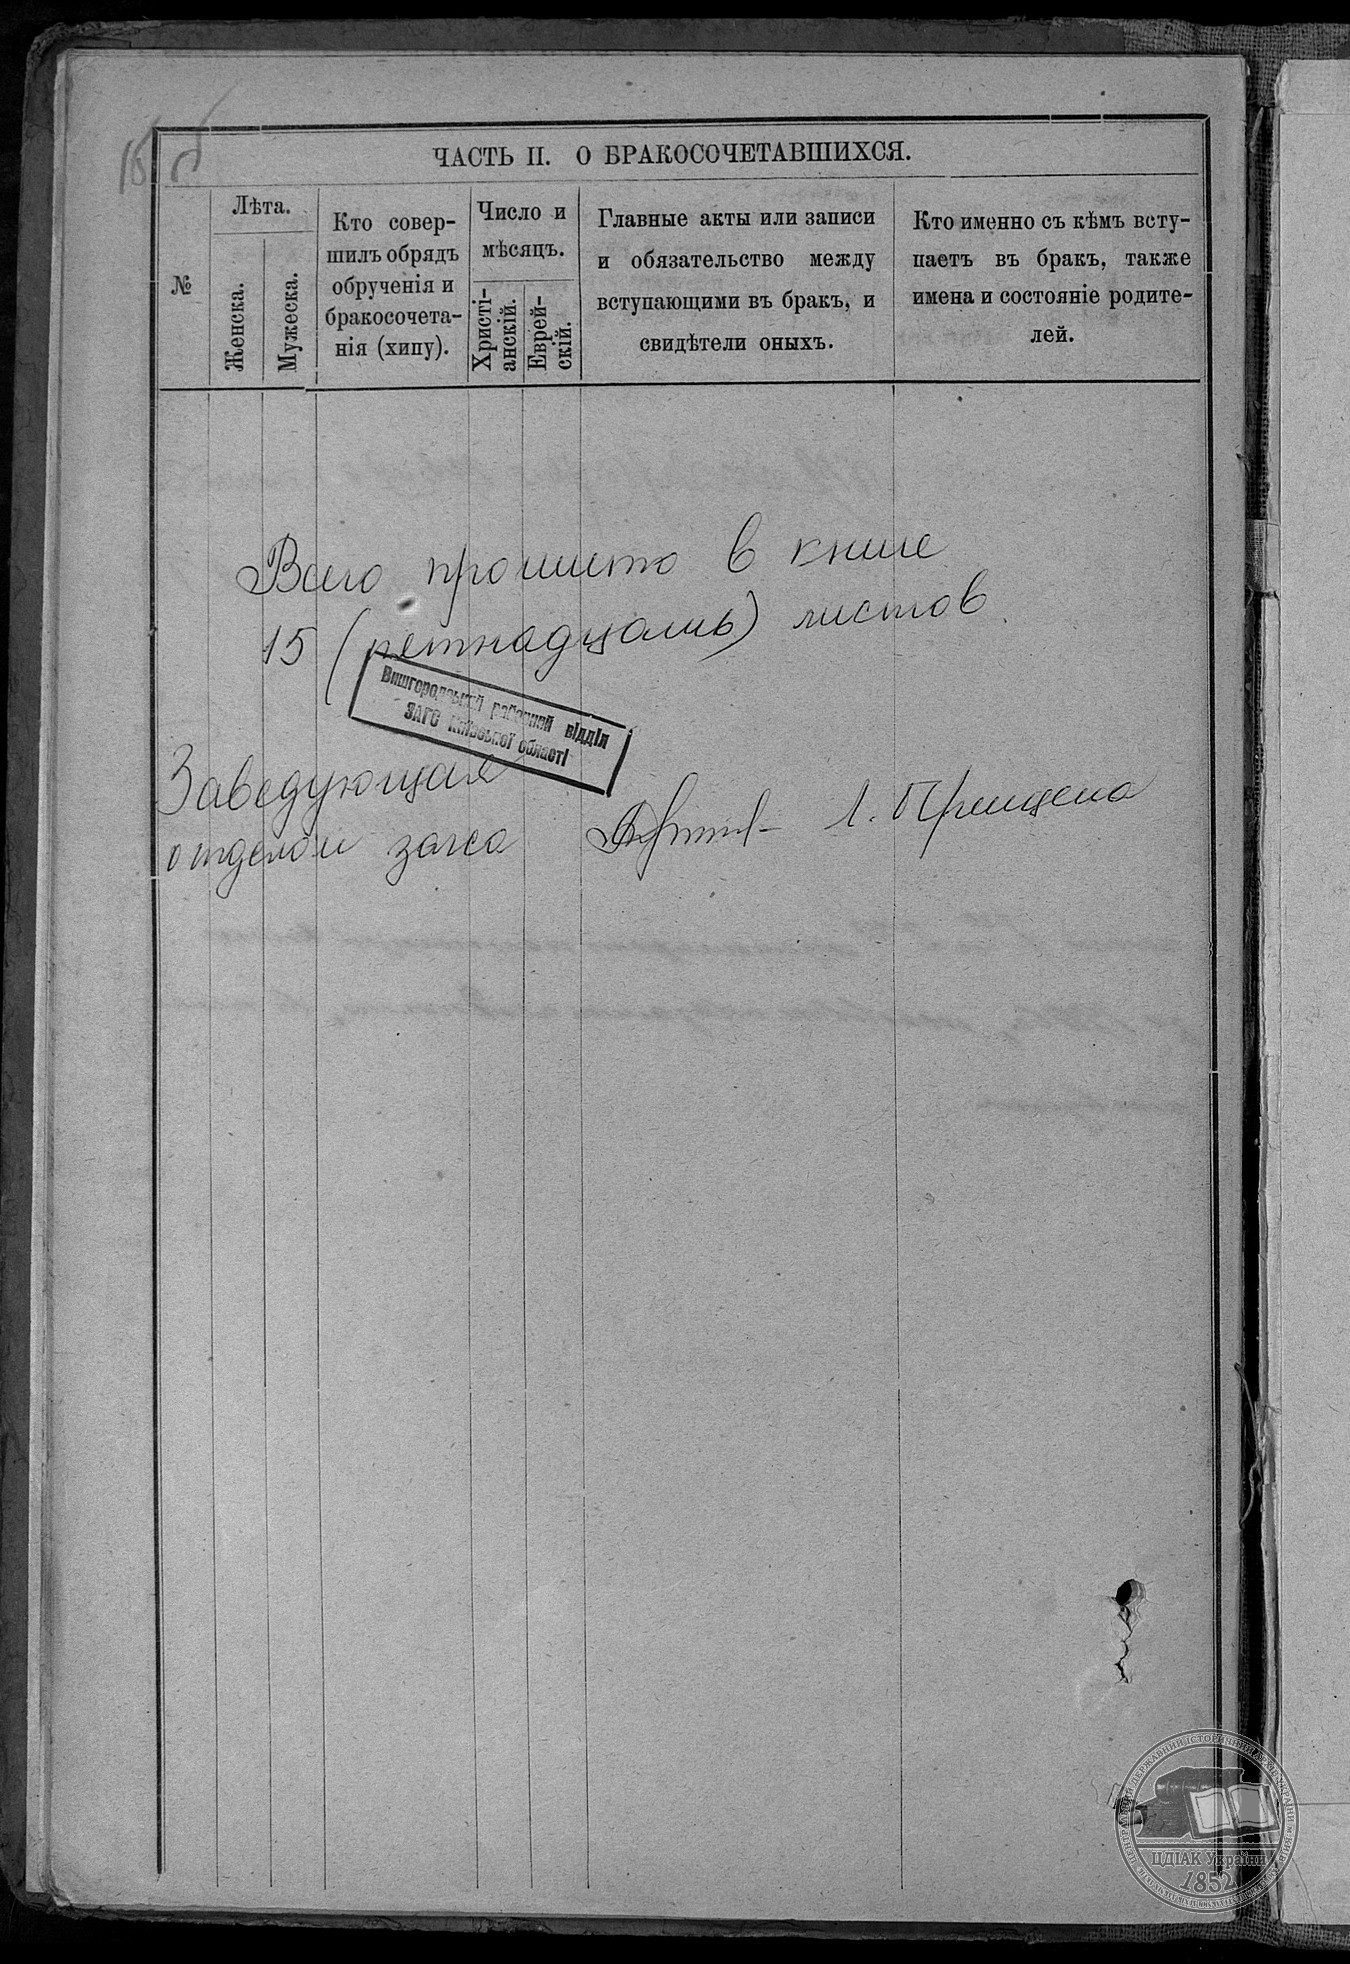 ЧАСТЬ II. О БРАКОСОЧЕТАВШИХСЯ.
№
Лѣта.
Женска.
Мужеска.
Кто совер-
шилъ обрядъ
обрученія и
бракосочета-
нія (хипу).
Число и
мѣсяцъ.
Христі-
анскій.
Еврей-
скій.
Главные акты или записи
и обязательство между
вступающими въ бракъ, и
свидѣтели оныхъ.
Кто именно съ кѣмъ всту-
паетъ въ бракъ, также
имена и состояніе родите-
лей.
Всего прошито в книге
15 (петнадцать) листов.
Вишгородський районний відділ
ЗАГС Київської області
Заведующая
отделом загса Л.
ЦДІАК України
1852